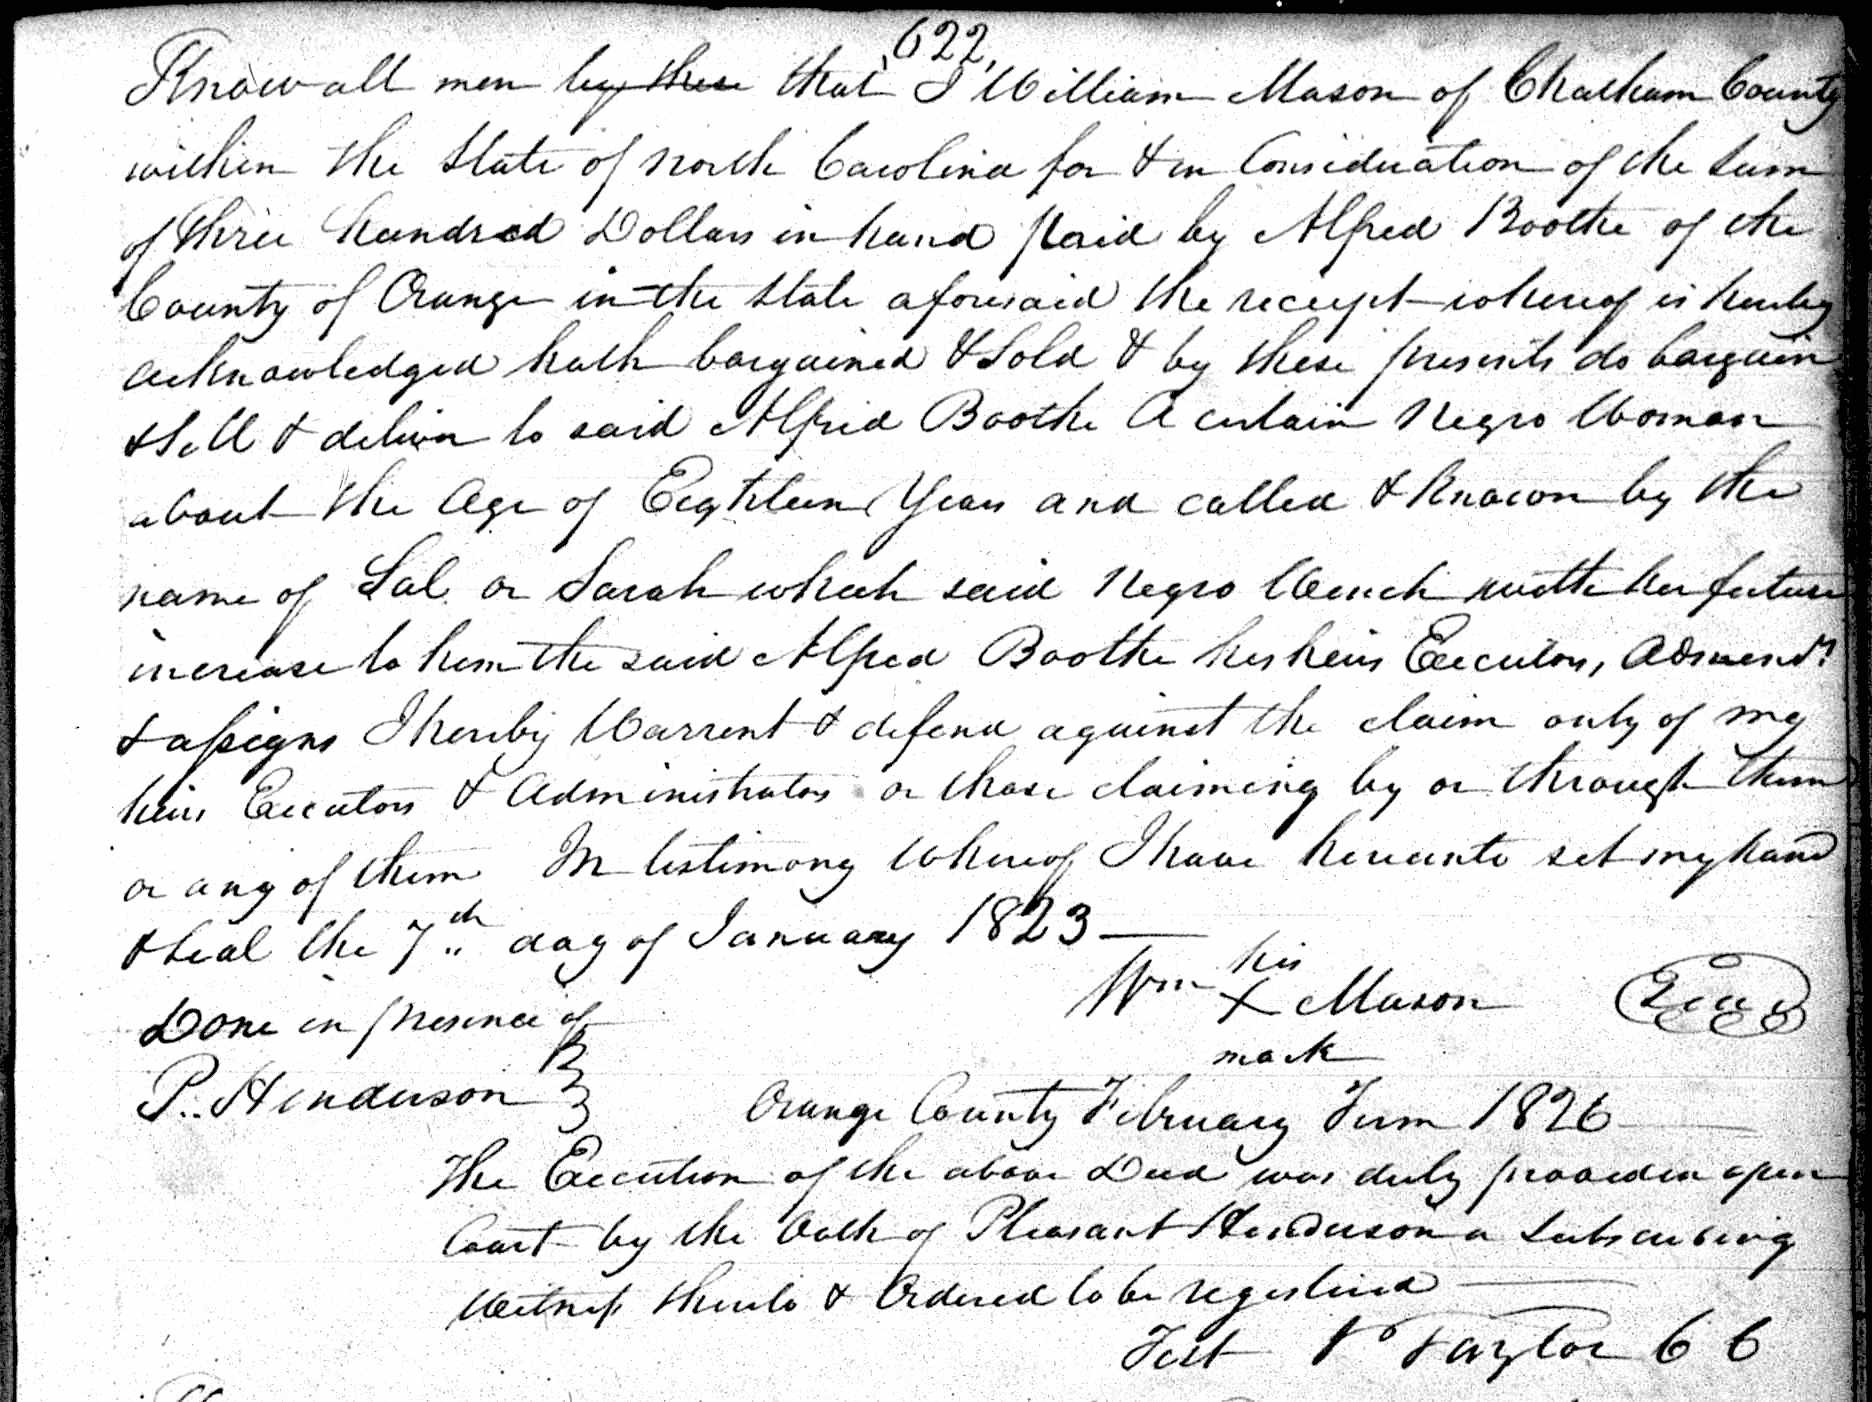 622
Know all men by these that I William Mason of Chatham County
within the State of North Carolina for & in Consideration of the Sum
of three hundred Dollars in hand paid by Alfred Boothe of the
County of Orange in the State aforesaid the receipt whereof is hereby
acknowledged hath bargained & Sold & by these presents do bargain
& Sell & deliver to said Alfred Boothe A certain Negro Woman
about the Age of Eighteen Years and called & Known by the
name of Sal or Sarah which said Negro Wench with her future
increase to him the said Alfred Boothe his heirs Executors, Admend.rs
& assigns I hereby Warrent & defend against the claim only of my
heirs Executors & Administrators or those claiming by or through them
or any of them In testimony Whereof I have hereunto set my hand
& Seal the 7th day of January 1823
his
Wm X Mason Seal
mark
Done in presence of
P. Henderson
Orange County February Term 1826
The Execution of the above Deed was duly proved in open
Court by the Oath of Pleasant Henderson a Subscribing
Witness thereto & Ordered to be registered
Test J Taylor CC